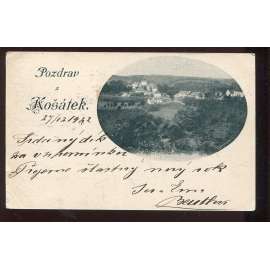 Pozdrav
z
Košátek.
27/12 1942
Srdečný dík
za vzpomínku
Přejeme šťastný nový rok